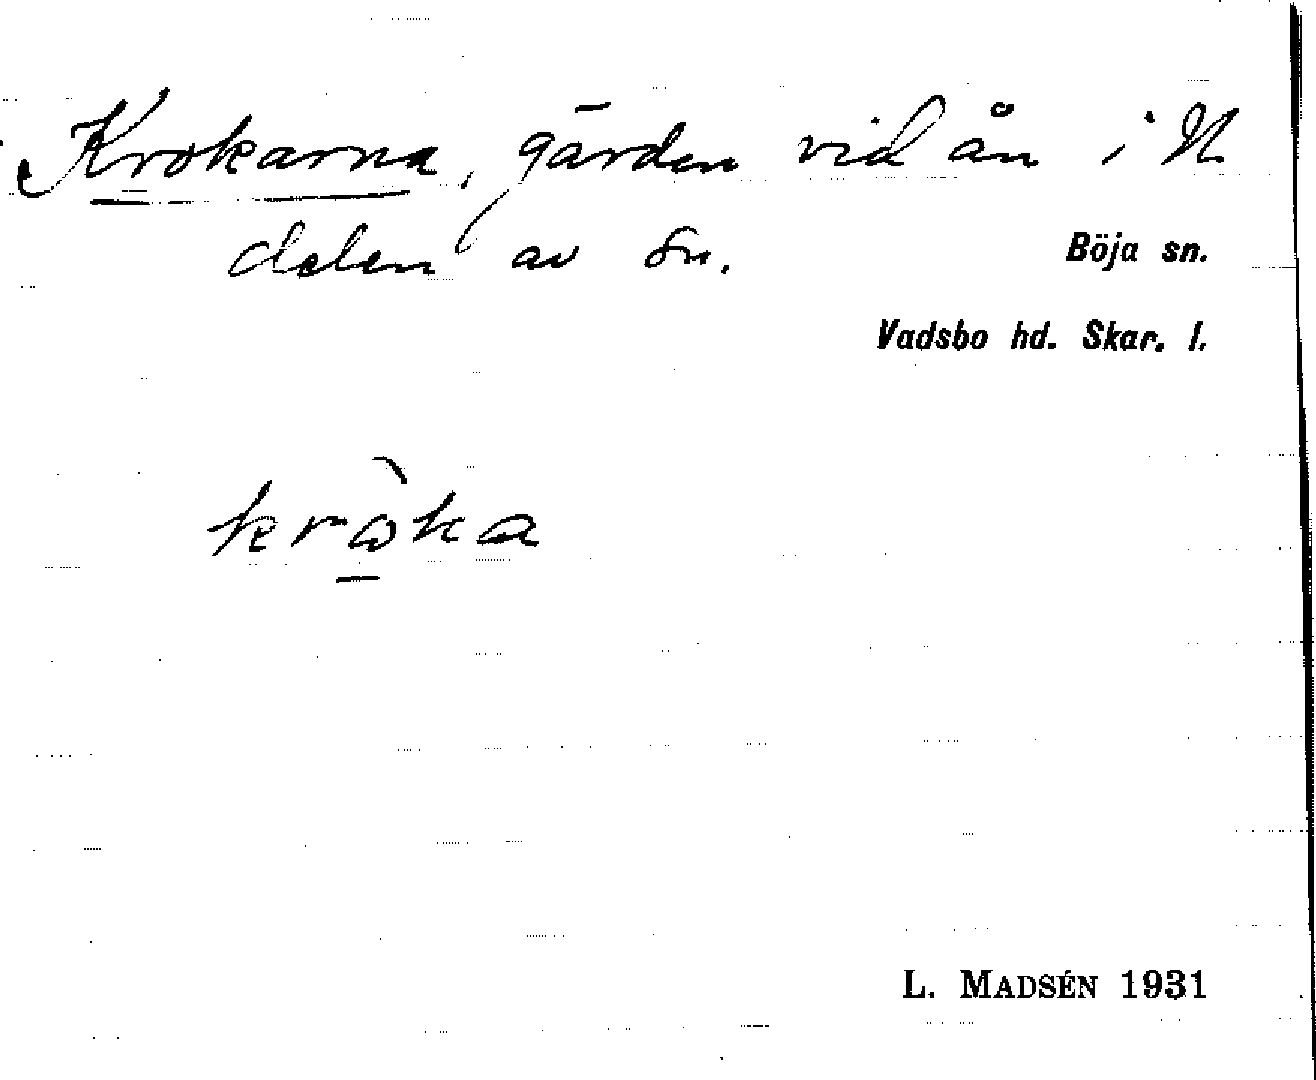 Krokarna, gärden vid ån i N.
delen av sn.
Böja sn.
Vadsbo hd. Skar. l.
kròka
L. MADSÉN 1931